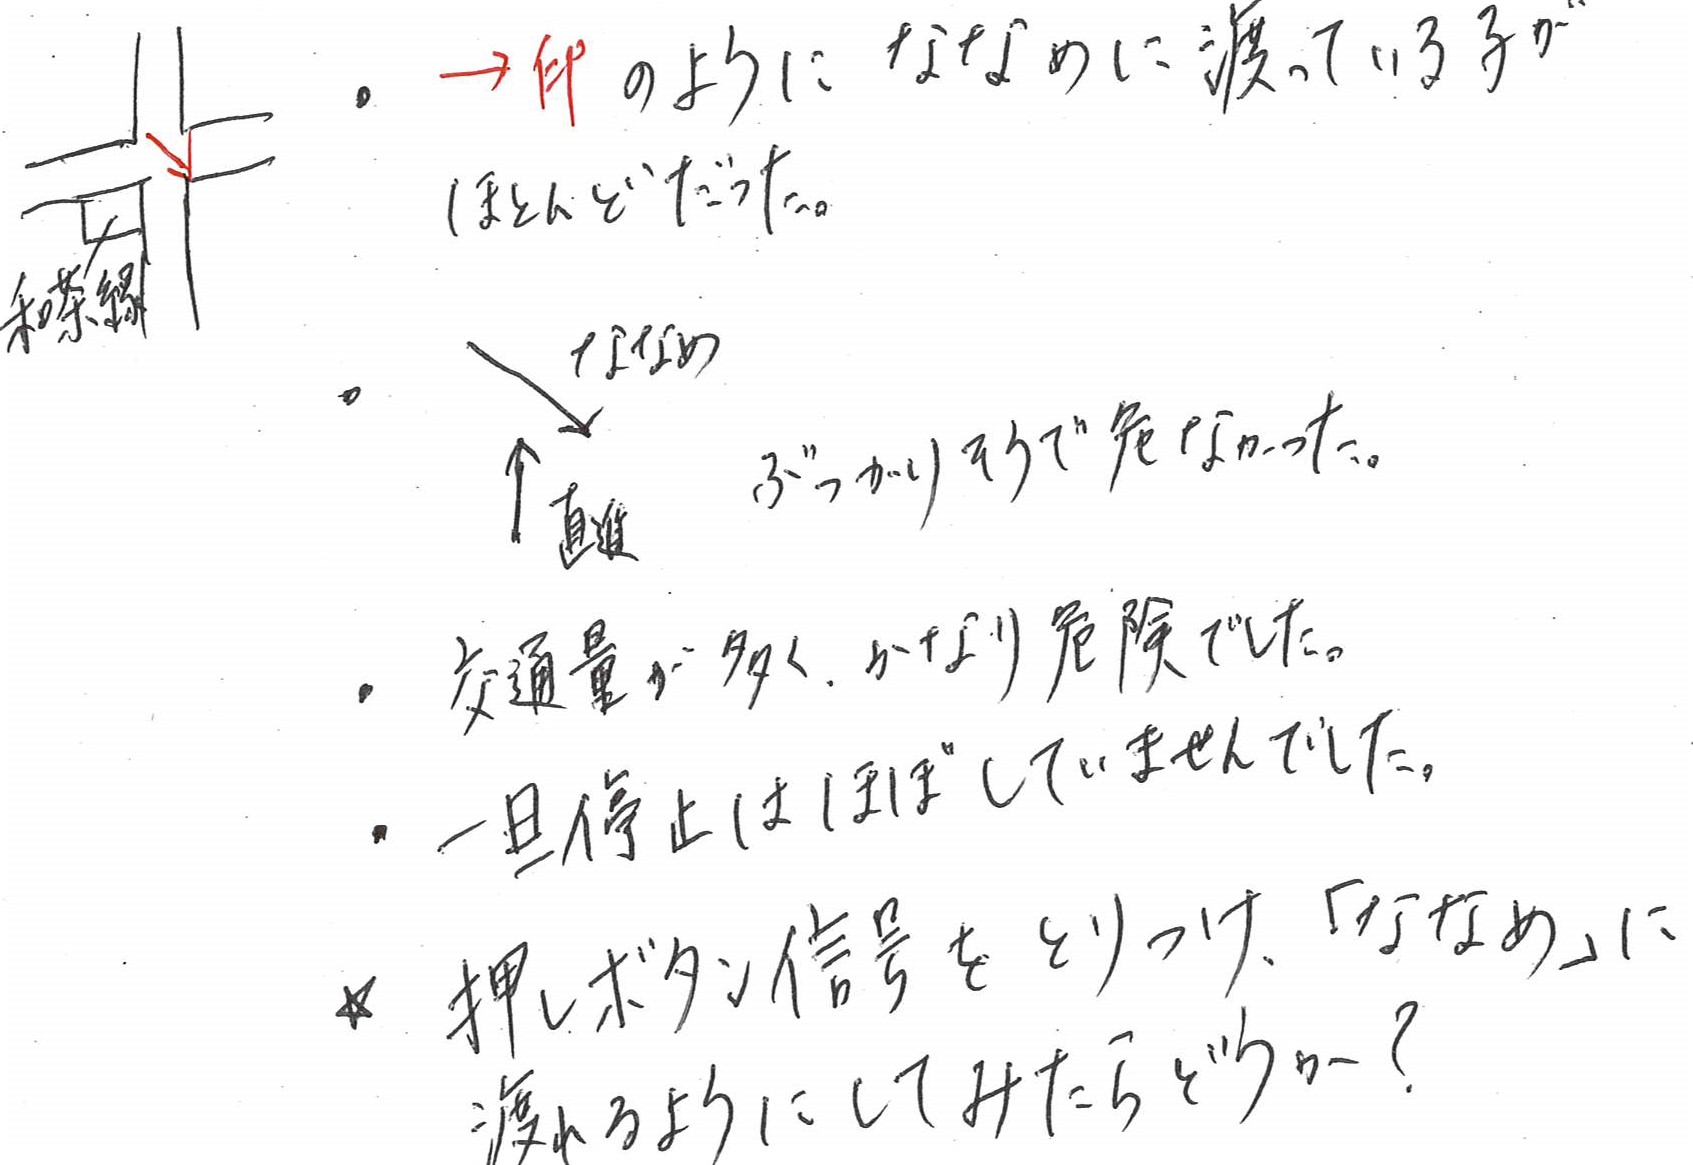 ・ →印のように ななめに渡っている子が
ほとんどだった。
和茶縁
・ ななめ
直進
ぶつかりそうで危なかった。
・ 交通量が多く、かなり危険でした。
・ 一旦停止はほぼしていませんでした。
☆ 押しボタン信号をとりつけ、「ななめ」に
渡れるようにしてみたらどうか?